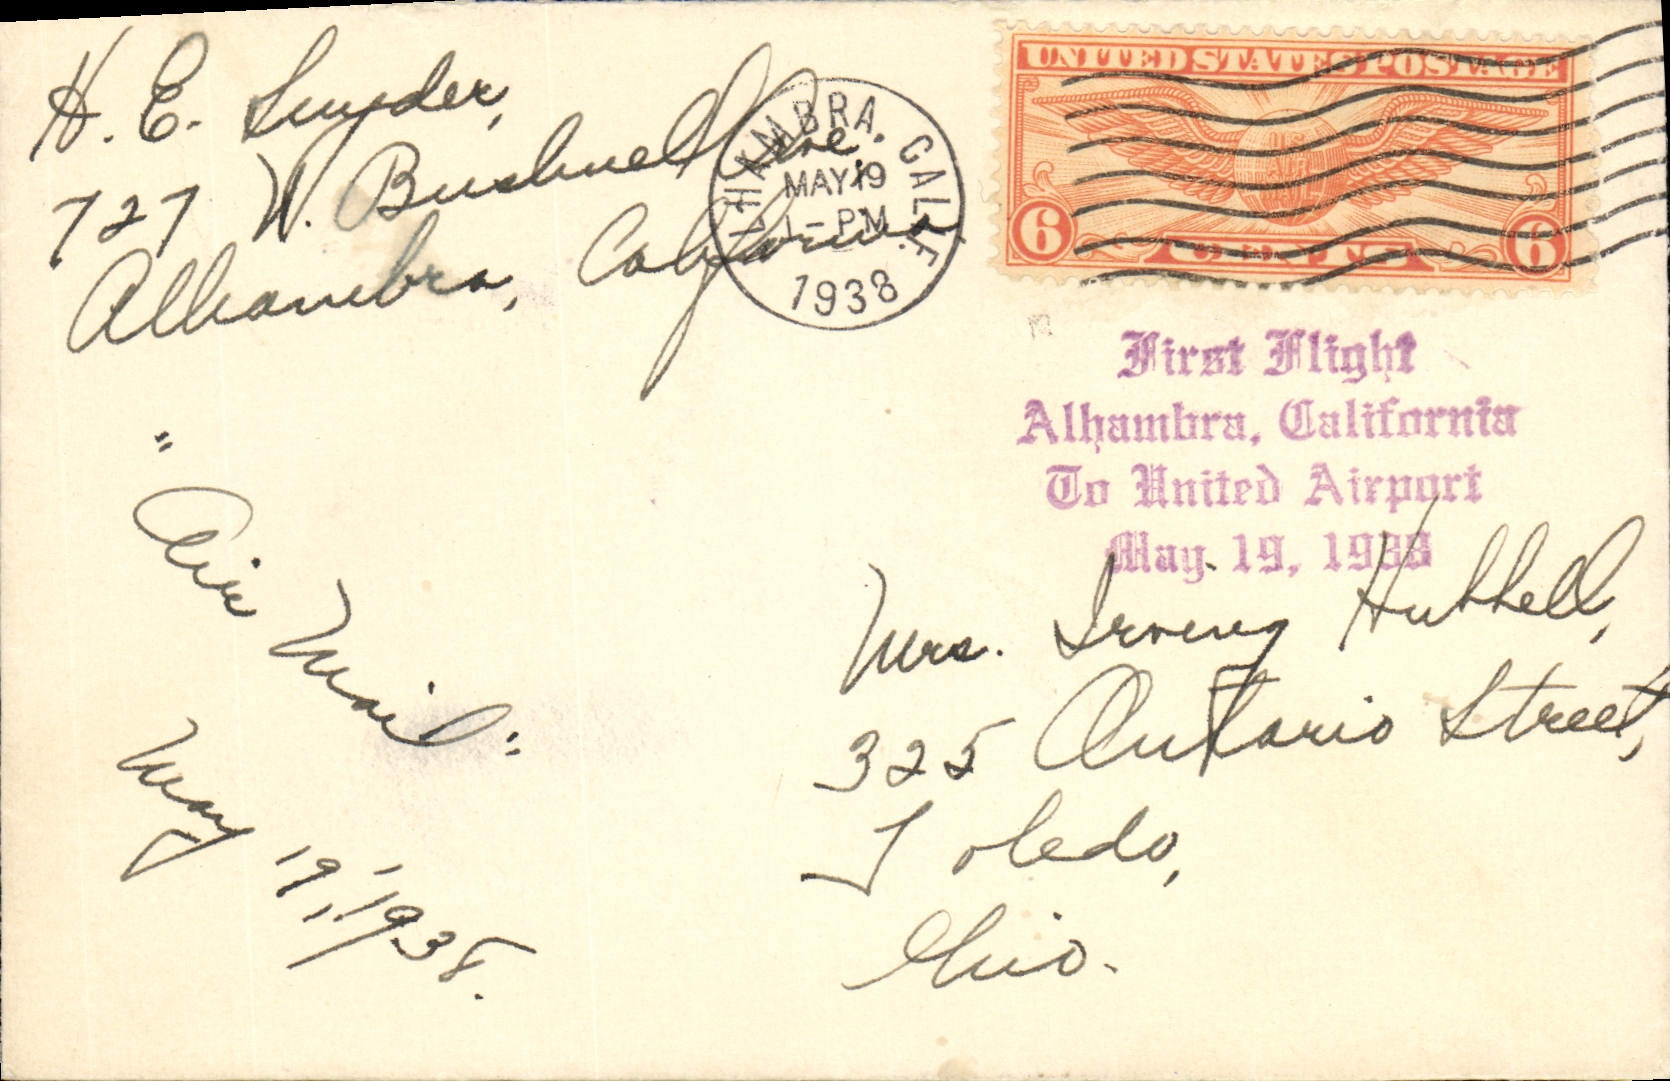 H. E. Snyder,
727 W. Bushnell Ave.
Alhambra, California
ALHAMBRA, CALIF.
MAY 19
1-PM
1938
UNITED STATES POSTAGE
6 CENTS 6
First Flight
Alhambra, California
To United Airport
May. 19, 1938
"Air Mail"
May 19, 1938.
Mrs. Irving Hubbell,
325 Ontario Street,
Toledo,
Ohio.